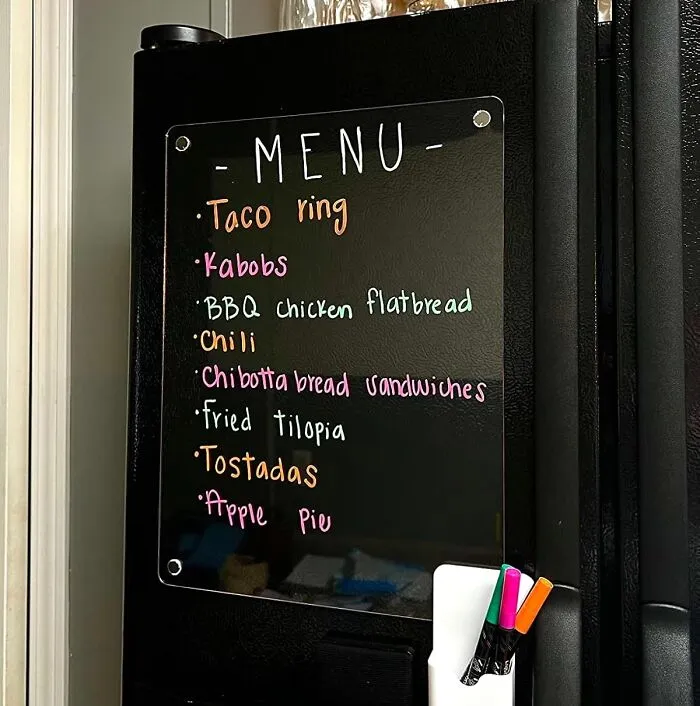 - MENU -
·Taco ring
·Kabobs
·BBQ chicken flatbread
·Chili
·Chibotta bread sandwiches
·fried tilopia
·Tostadas
·Apple pie